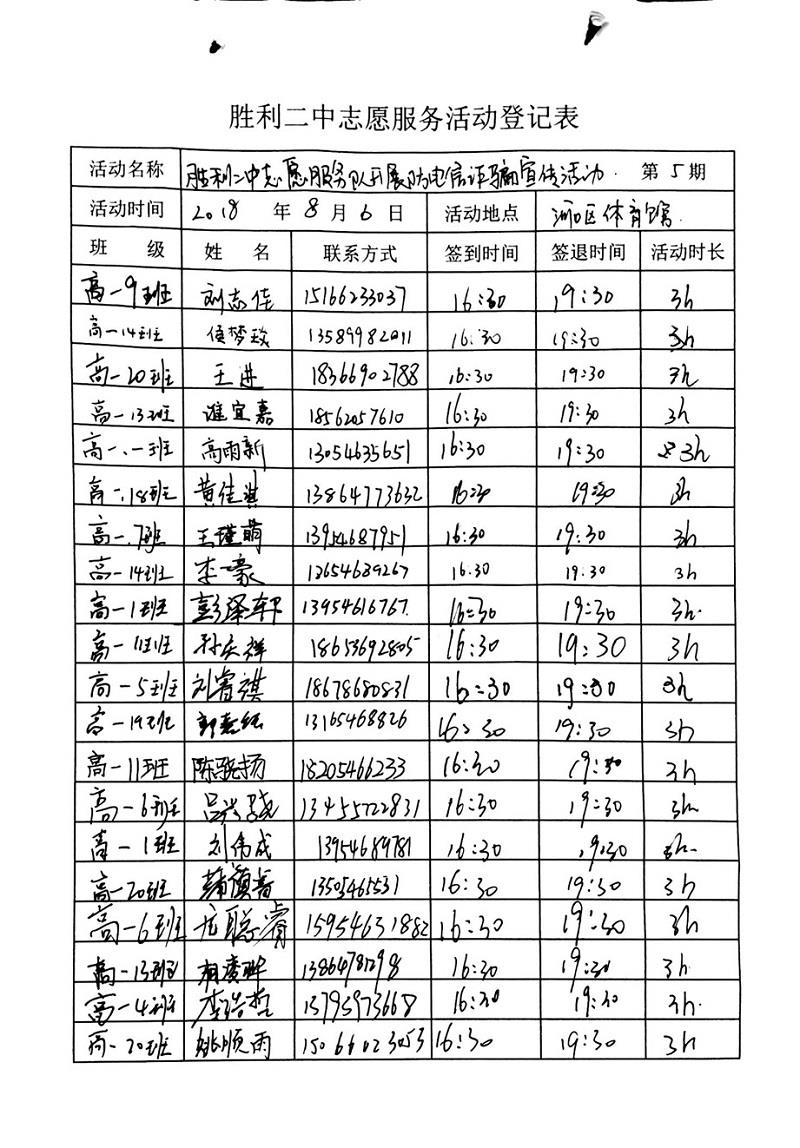 胜利二中志愿服务活动登记表
活动名称 胜利二中志愿服务队开展防电信诈骗宣传活动. 第 5 期
活动时间 2018 年 8 月 6 日 活动地点 河口区体育馆.
班 级 姓 名 联系方式 签到时间 签退时间 活动时长
高一9班 刘志佳 15166233037 16:30 19:30 3h
高一14班 侯梦玫 13589982011 16:30 19:30 3h
高一20班 王进 18366902788 16:30 19:30 3h
高一13班 淮宜嘉 18562057610 16:30 19:30 3h
高一.一班 高雨新 13054635651 16:30 19:30 3h
高一.18班 黄佳淇 13864773632 16:30 19:30 3h
高一.7班 王瑾萌 13954687951 16:30 19:30 3h
高一14班 李豪 12654639267 16:30 19:30 3h
高一1班 彭泽轩 13954616767. 16:30 19:30 3h.
高一11班 孙庆祥 18653692805 16:30 19:30 3h
高一5班 刘睿祺 18678680831 16:30 19:30 3h
高一19班 13165468826 16:30 19:30 3h
高一11班 陈骁扬 18205466233 16:30 19:30 3h
高一6班 13455722831 16:30 19:30 3h.
高一1班 刘伟成 13954689781 16:30 19:30 3h.
高一20班 13505465531 16:30 19:30 3h
高一6班 尤聪睿 15954631882 16:30 19:30 3h
高一13班 13864781298 16:30 19:30 3h.
高一4班 李浩哲 13795973668 16:30 19:30 3h.
高一20班 姚顺雨 15066023053 16:30 19:30 3h